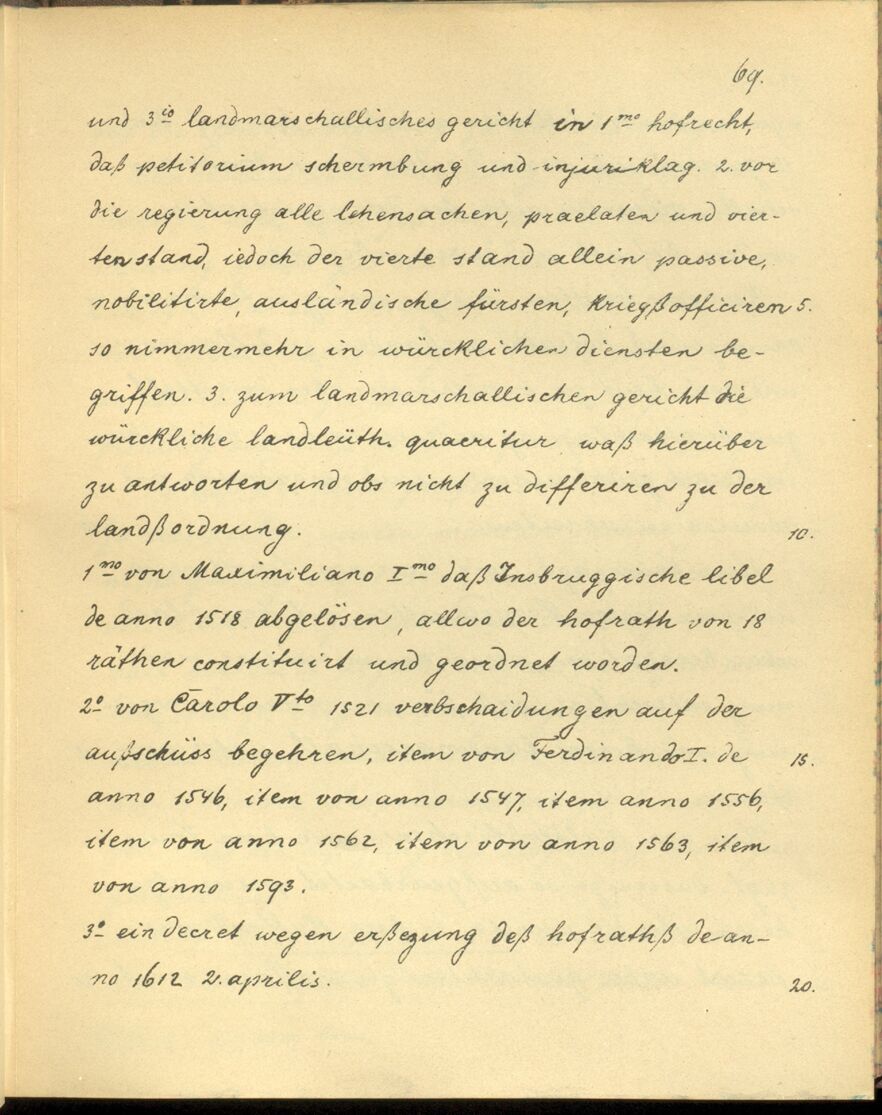 69.
und 3io landmarschallisches gericht in 1mo hofrecht,
daß petitorium schermbung und injuriklag. 2. vor
die regierung alle lehensachen, praelaten und vier-
tenstand, iedoch der vierte stand allein passive,
nobilitirte, ausländische fürsten, kriegßofficiren 5.
so nimmermehr in würcklichen diensten be-
griffen. 3. zum landmarschallischen gericht die
würckliche landleüth. quaeritur waß hierüber
zu antworten und obs nicht zu differiren zu der
landßordnung. 10.
1mo von Maximiliano Imo daß Insbruggische libel
de anno 1518 abgelösen, allwo der hofrath von 18
räthen constituirt und geordnet worden.
2o von Carolo Vto 1521 verbschaidungen auf der
außschüss begehren, item von Ferdinando I. de 15.
anno 1546, item von anno 1547, item anno 1556,
item von anno 1562, item von anno 1563, item
von anno 1593.
3o ein decret wegen erßezung deß hofrathß de an-
no 1612 2. aprilis. 20.